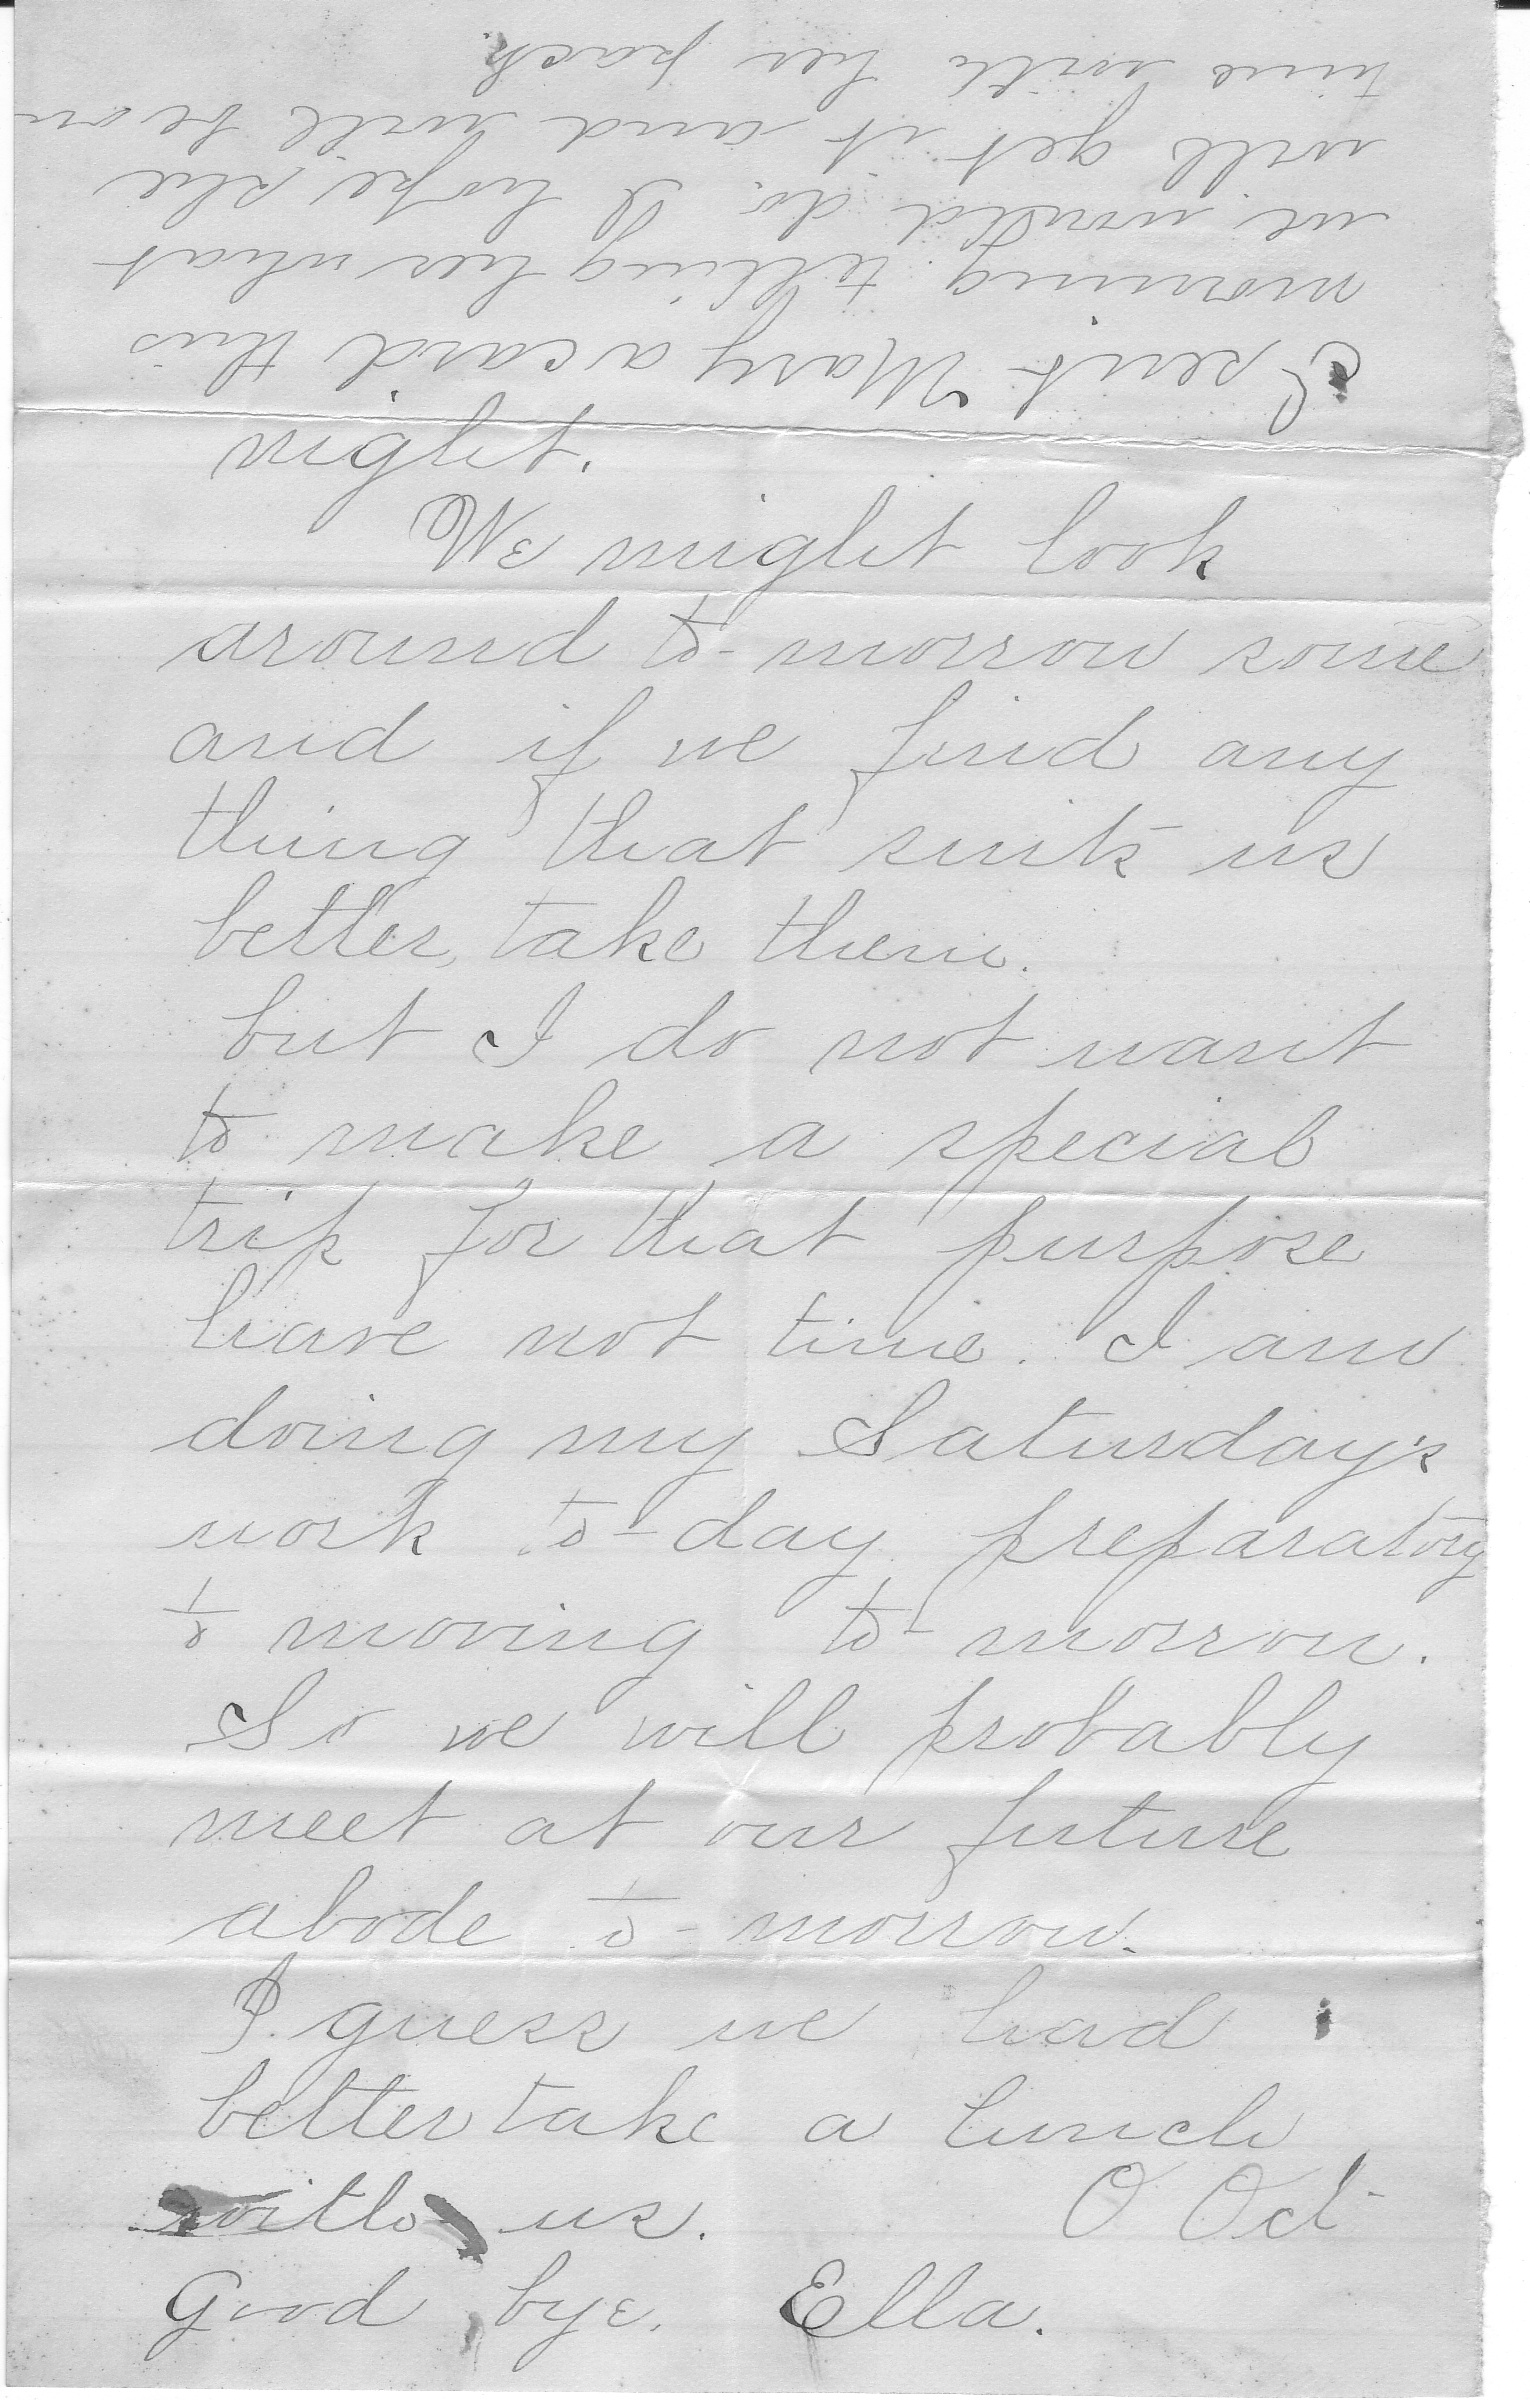 night.
We might look
around to-morrow some
and if we find any
thing that suits us
better, take them.
but I do not want
to make a special
trip for that purpose
have not time. I am
doing my Saturday's
work to-day preparatory
to moving to-morrow.
So we will probably
meet at our future
abode to-morrow.
I guess we had
better take a lunch
with us.
Good bye. Ella.
I sent Mary a card this
morning telling her what
we would do. I hope she
will get it and will be on
time with her pack.